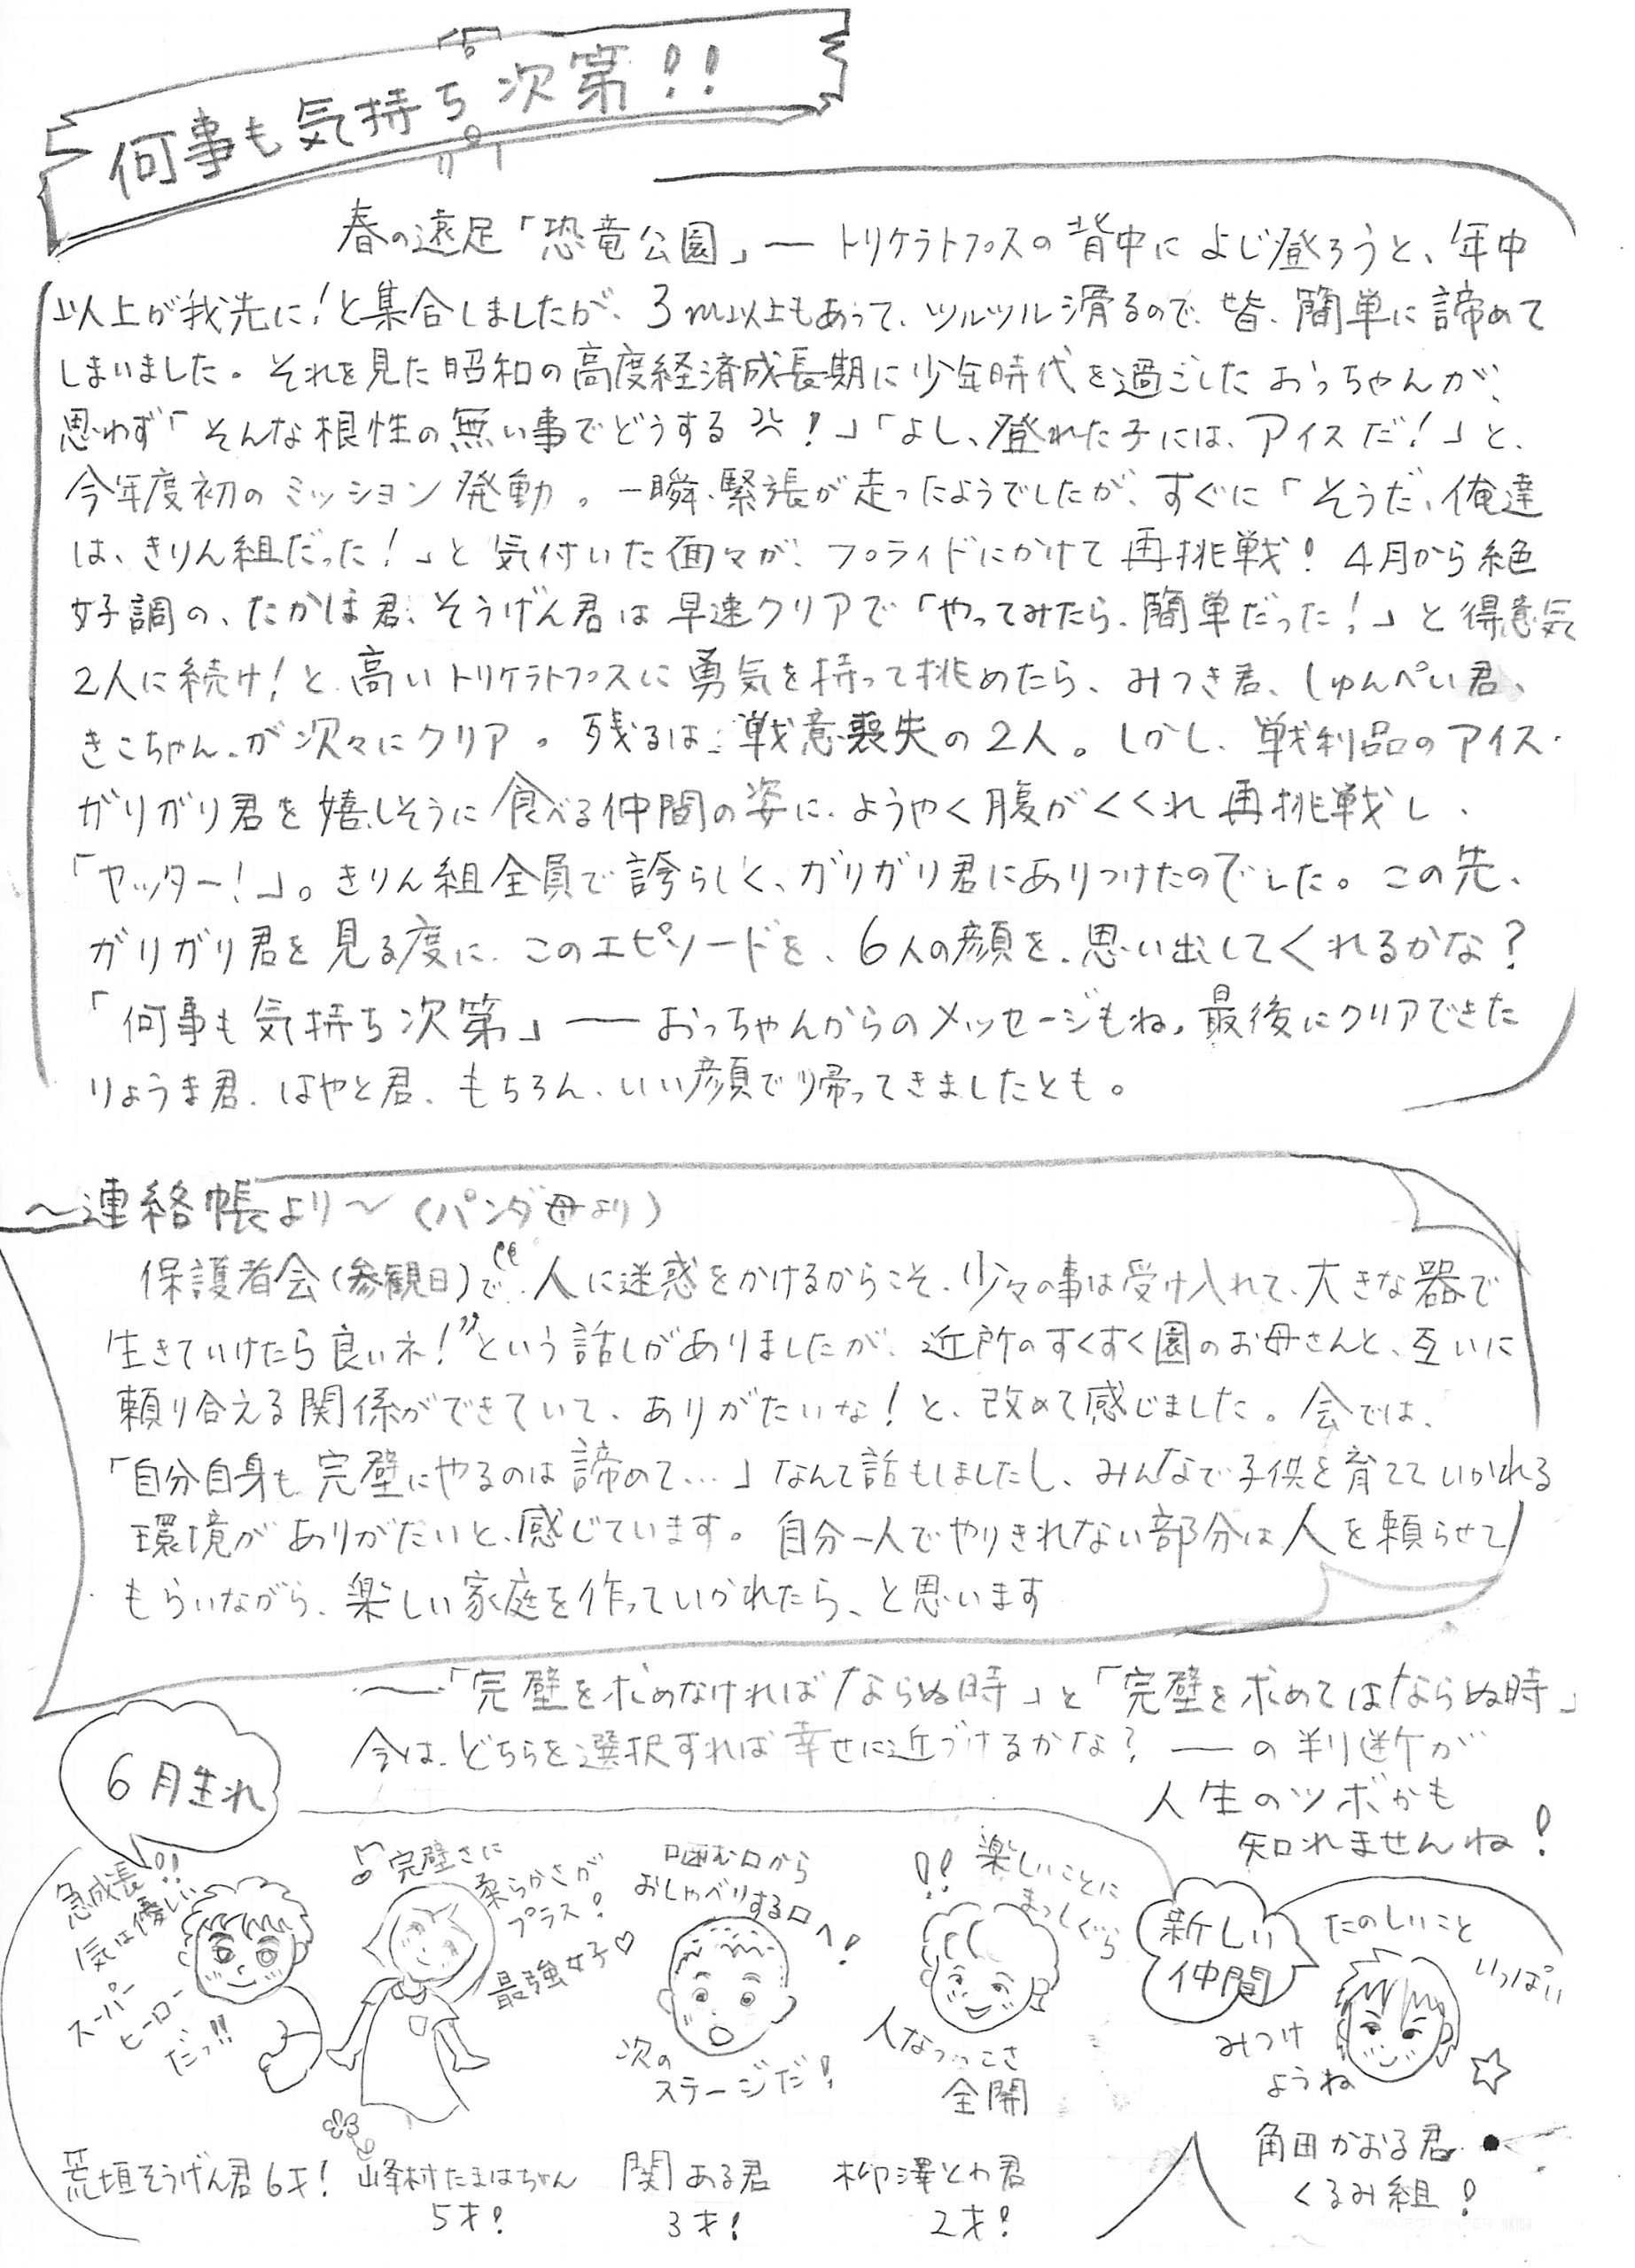 何事も気持ち次第!!
春の遠足「恐竜公園」― トリケラトプスの背中によじ登ろうと、年中
以上が我先に!と集合しましたが、3m以上もあって、ツルツル滑るので、皆、簡単に諦めて
しまいました。それを見た昭和の高度経済成長期に少年時代を過ごしたおっちゃんが、
思わず「そんな根性の無い事でどうする!」「よし、登れた子には、アイスだ!」と、
今年度初のミッション発動。一瞬、緊張が走ったようでしたが、すぐに「そうだ、俺達
は、きりん組だった!」と気付いた面々が、プライドにかけて再挑戦! 4月から絶
好調の、たかほ君、そうげん君は早速クリアで「やってみたら、簡単だった!」と得意気
2人に続け!と、高いトリケラトプスに勇気を持って挑めたら、みつき君、しゅんぺい君、
きこちゃん、が次々にクリア。残るは、戦意喪失の2人。しかし、戦利品のアイス・
ガリガリ君を嬉しそうに食べる仲間の姿に、ようやく腹がくくれ再挑戦し、
「ヤッター!」。きりん組全員で誇らしく、ガリガリ君にありつけたのでした。この先、
ガリガリ君を見る度に、このエピソードを、6人の顔を、思い出してくれるかな?
「何事も気持ち次第」― おっちゃんからのメッセージもね。最後にクリアできた
りょうま君、はやと君、もちろん、いい顔で帰ってきましたとも。
～連絡帳より～(パンダ母より)
保護者会(参観日)で“人に迷惑をかけるからこそ、少々の事は受け入れて、大きな器で
生きていけたら良いネ!”という話しがありましたが、近所のすくすく園のお母さんと、互いに
頼り合える関係ができていて、ありがたいな!と、改めて感じました。会では、
「自分自身も、完璧にやるのは諦めて…」なんて話もしましたし、みんなで子供を育てていかれる
環境がありがたいと、感じています。自分一人でやりきれない部分は人を頼らせて
もらいながら、楽しい家庭を作っていかれたら、と思います
～「完璧を求めなければならぬ時」と「完璧を求めてはならぬ時」
今は、どちらを選択すれば幸せに近づけるかな? ― の判断が
人生のツボかも
知れませんね!
6月生れ
急成長!!
気は優しい
スーパー
ヒーロー
だっ!!
荒垣そうげん君6才!
♪完璧さに
柔らかさが
プラス!
最強女子♡
峰村たまはちゃん
5才!
噛む口から
おしゃべりする口へ!
次の
ステージだ!
関ある君
3才!
!!楽しいことに
まっしぐら
人なつっこさ
全開
柳澤とわ君
2才!
新しい
仲間
たのしいこと
いっぱい
みつけ
ようね
☆
角田かおる君
くるみ組!